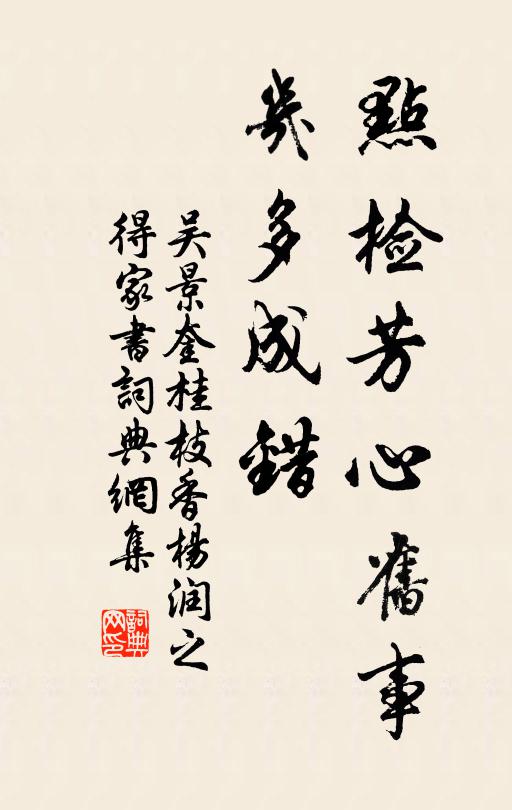 點檢芳心舊事
幾多成錯
吴景奎桂枝香楊润之
得家書詞典網集
詞典
网印